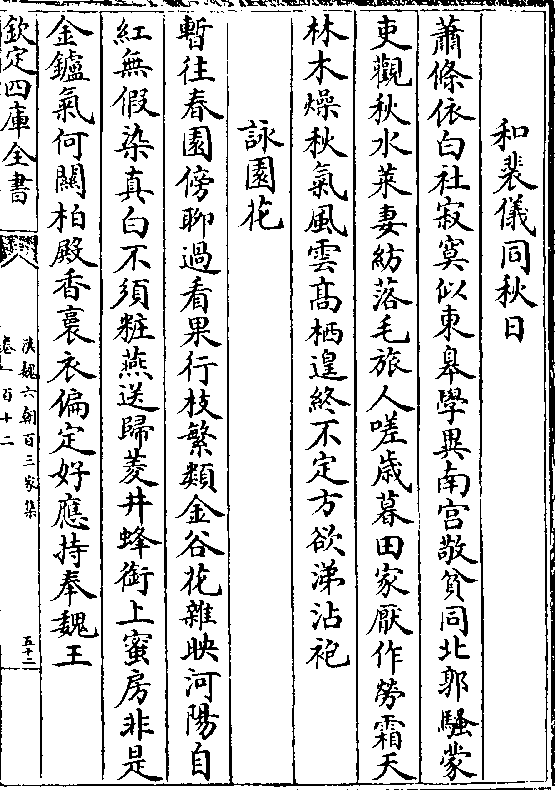 和裴儀同秋日
蕭條依白社寂寞似東臯學異南宫敬貧同北郭騷蒙
吏觀秋水萊妻紡落毛旅人嗟歲暮田家厭作勞霜天
林木燥秋氣風雲髙栖遑終不定方欲涕沾袍
詠園花
暫往春園傍聊過看果行枝繁類金谷花雜映河陽自
紅無假染真白不須粧燕送歸菱井蜂銜上蜜房非是
金鑪氣何關柏殿香裛衣偏定好應持奉魏王
欽定四庫全書
漢魏六朝百三家集
卷一百十二
五十二